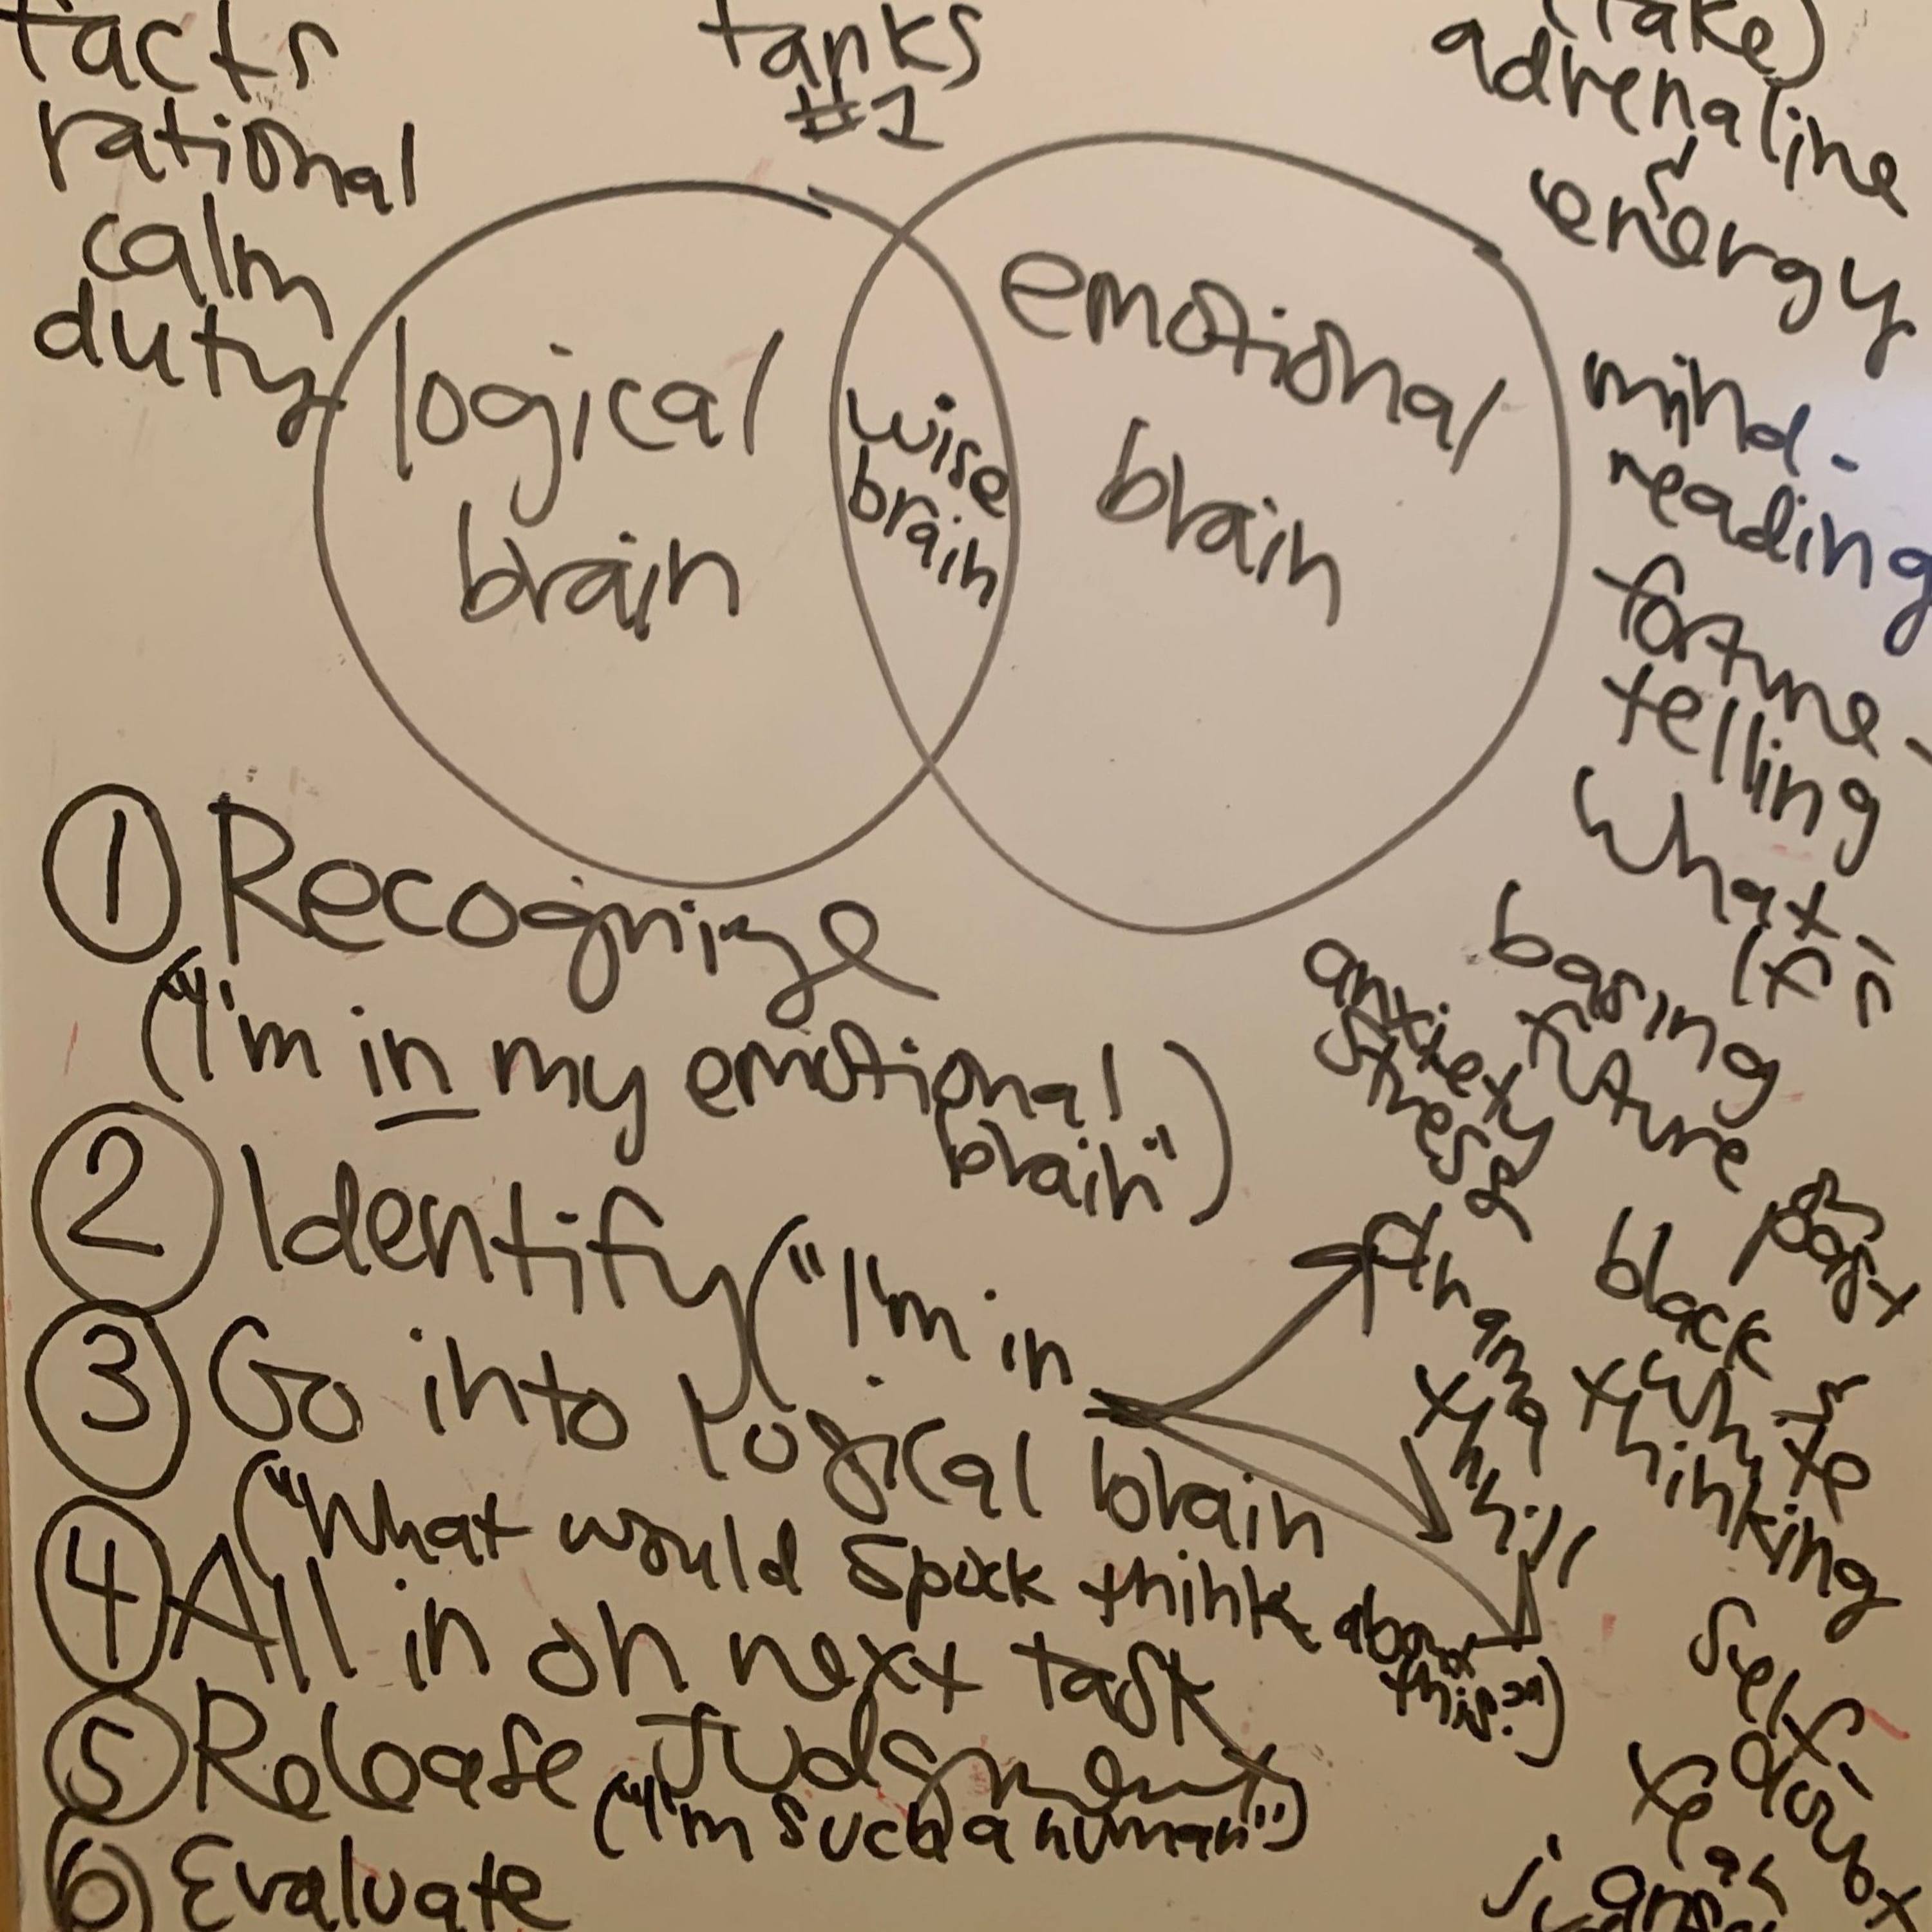 facts
rational
calm
duty
tanks
#1
adrenaline
energy
mind-
reading
fortune-
telling
"what
if"
logical
brain
wise
brain
emotional
brain
① Recognize
("I'm in my emotional
brain")
② Identify ("I'm in
③ Go into logical brain
("What would Spock think about
this?")
④ All in on next task
⑤ Release Judgment
("I'm such a human")
⑥ Evaluate
basing
future
on
past
anxiety
stress
&
black
& white
thinking
self-
doubt
fear